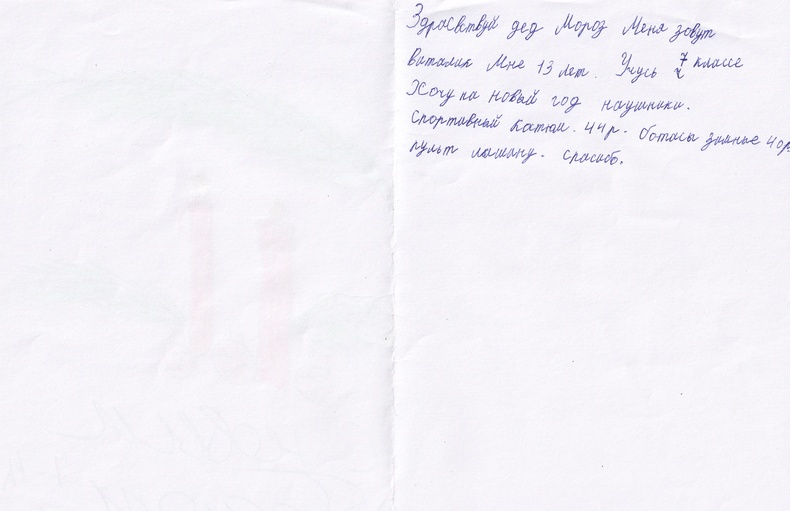 Здравствуй дед Мороз Меня зовут
Виталик Мне 13 лет. Учусь 7 классе
Хочу на новый год наушники.
Спортивный Катюм. 44р. ботасы зимние 40р
пульт машину. спасибо.